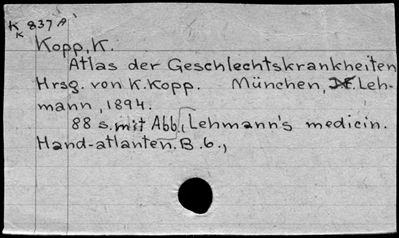 K 837 A
K
Kopp, K.
Atlas der Geschlechtskrankheiten
Hrsg. von K. Kopp. München, J.F. Leh-
mann, 1894.
88 s. mit Abb. [Lehmann's medicin.
Hand-atlanten. B. 6.,